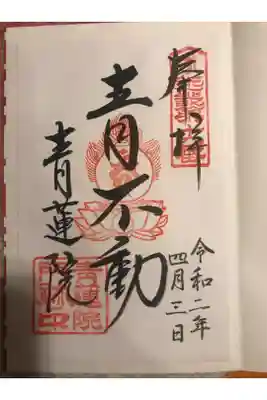 奉拝
令和二年
四月三日
青不動
青蓮院